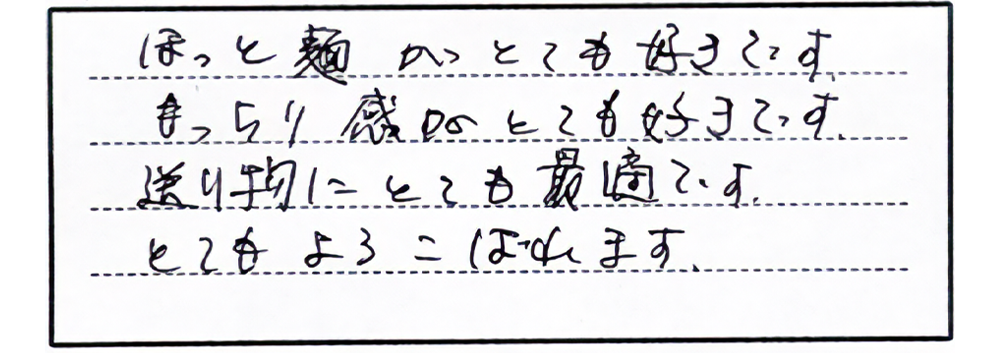 ほっと麺がとても好きです。
もっちり感がとても好きです。
送り物にとても最適です。
とてもよろこばれます。